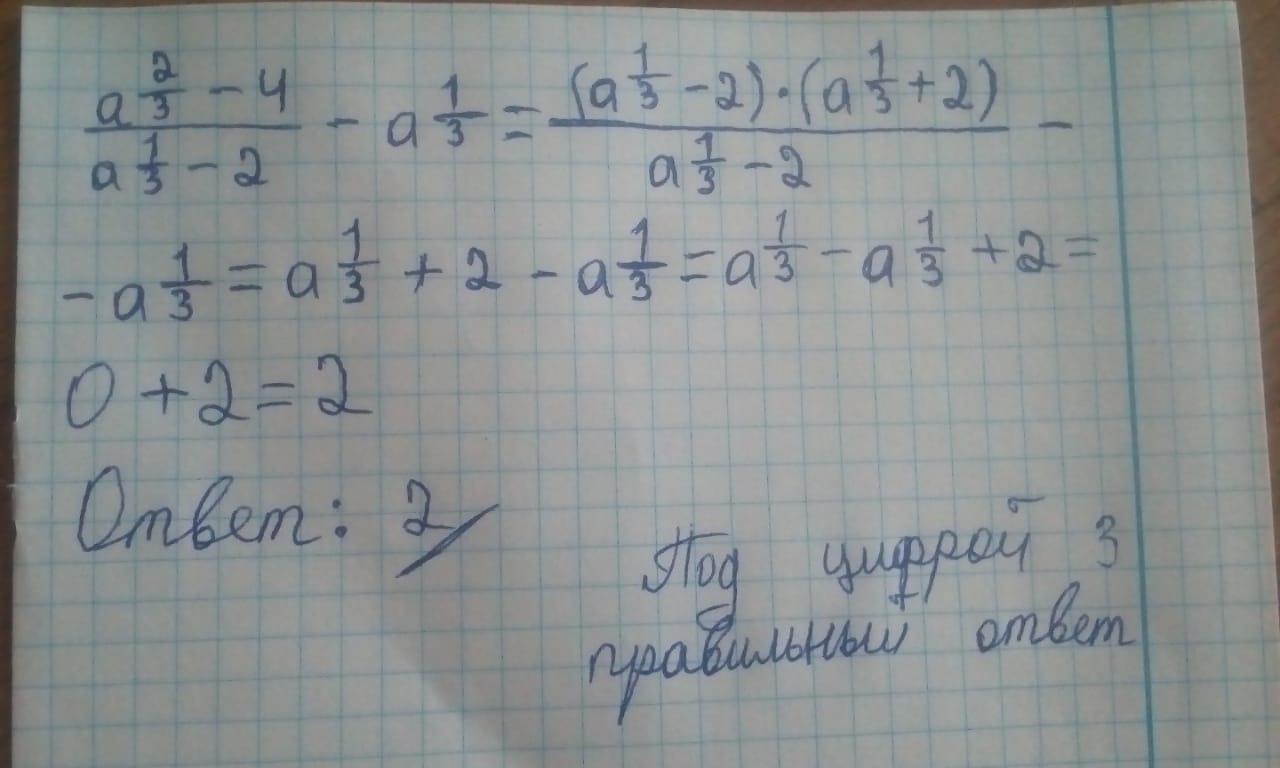 (a^(2/3) - 4)/(a^(1/3) - 2) - a^(1/3) = ((a^(1/3) - 2)·(a^(1/3) + 2))/(a^(1/3) - 2) -
- a^(1/3) = a^(1/3) + 2 - a^(1/3) = a^(1/3) - a^(1/3) + 2 =
0 + 2 = 2
Ответ: 2
Под цифрой 3
правильный ответ